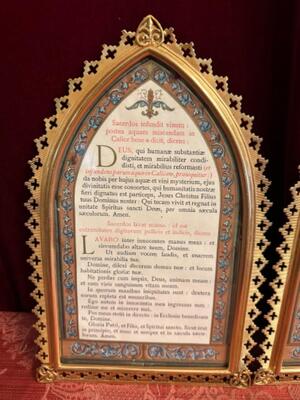 Sacerdos infundit vinum :
postea aquam miscendam in
Calice benedicit, dicens :
DEUS, qui humanæ substantiæ
dignitatem mirabiliter condi-
disti, et mirabilius reformasti : (et
infundens parum aquæ in Calicem, prosequitur :)
da nobis per hujus aquæ et vini mysterium, ejus
divinitatis esse consortes, qui humanitatis nostræ
fieri dignatus est particeps, Jesus Christus Filius
tuus Dominus noster : Qui tecum vivit et regnat in
unitate Spiritus sancti Deus, per omnia sæcula
sæculorum. Amen.
Sacerdos lavat manus : id est
extremitates digitorum pollicis et indicis, dicens
LAVABO inter innocentes manus meas : et
circumdabo altare tuum, Domine.
Ut audiam vocem laudis, et enarrem
universa mirabilia tua.
Domine, dilexi decorem domus tuæ : et locum
habitationis gloriæ tuæ.
Ne perdas cum impiis, Deus, animam meam :
et cum viris sanguinum vitam meam.
In quorum manibus iniquitates sunt : dextera
eorum repleta est muneribus.
Ego autem in innocentia mea ingressus sum :
redime me et miserere mei.
Pes meus stetit in directo : in Ecclesiis benedicam
te, Domine.
Gloria Patri, et Filio, et Spiritui sancto. Sicut erat
in principio, et nunc et semper et in sæcula sæcu-
lorum. Amen.